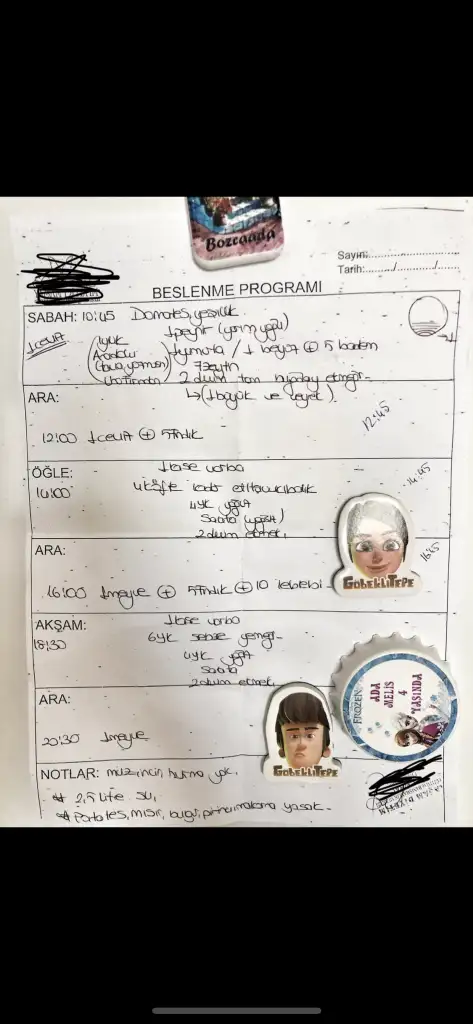 Bozcaada
Sayın:
Tarih: / /
BESLENME PROGRAMI
SABAH: 10:45 Domates, yeşillik
1 ceviz 1 peynir (yarım yağlı)
1 yumurta / 1 beyaz + 5 badem
7 zeytin
2 dilim tam buğday ekmeği
ARA:
12:45
12:00 1 ceviz + 5 fındık
ÖĞLE: 1 kase çorba
14:00 4 köfte kadar et/tavuk/balık
14:45
4yk yoğurt
Salata
2 dilim ekmek
ARA:
16:45
16:00 1 meyve + 5 fındık + 10 leblebi
GÖBEKLİTEPE
AKŞAM: 1 kase çorba
18:30 6yk sebze yemeği
4yk yoğurt
Salata
2 dilim ekmek
FROZEN
ADA
MELİS
4
YAŞINDA
ARA:
20:30 1 meyve
GÖBEKLİTEPE
NOTLAR: muz, incir, hurma yok.
* 2,5 litre su,
* Patates, mısır, bulgur, pirinç, makarna yasak.